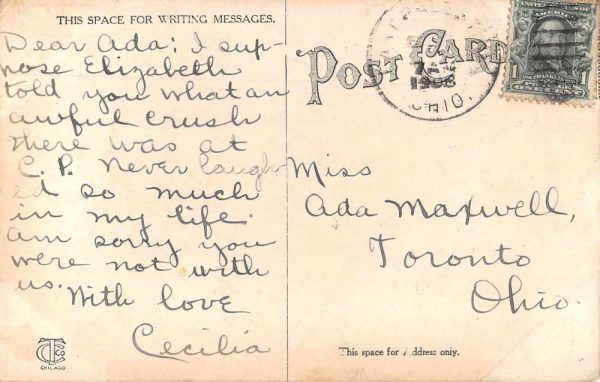 THIS SPACE FOR WRITING MESSAGES.
Dear Ada: I sup-
pose Elizabeth
told you what an
awful crush
there was at
C. P. Never laugh-
ed so much
in my life.
am sorry you
were not with
us. With love
Cecilia
CTCo
CHICAGO
POST CARD
7 AM
1908
OHIO.
1
ONE CENT
Miss
Ada Maxwell,
Toronto
Ohio.
This space for Address only.